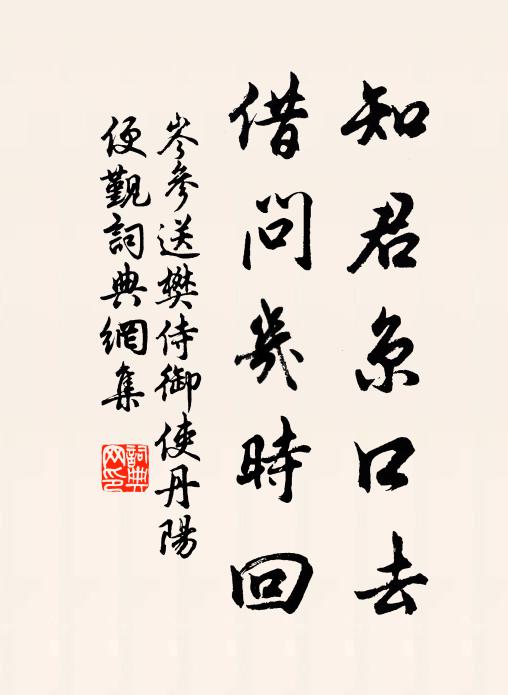 知君京口去
借問幾時回
岑參送樊侍御使丹陽
便觀詞典網集
詞典网印